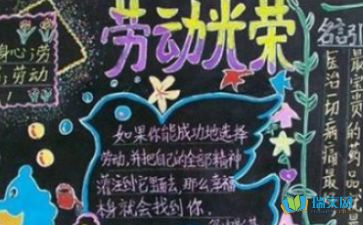 劳动光荣
身心劳
劳动
!
如果你能成功地选择
劳动,并把自己的全部精神
灌注到它里面去,那么幸福
本身就会找到你.
名言引
最宝贵的药口就
医治一切病痛最
瑞文网